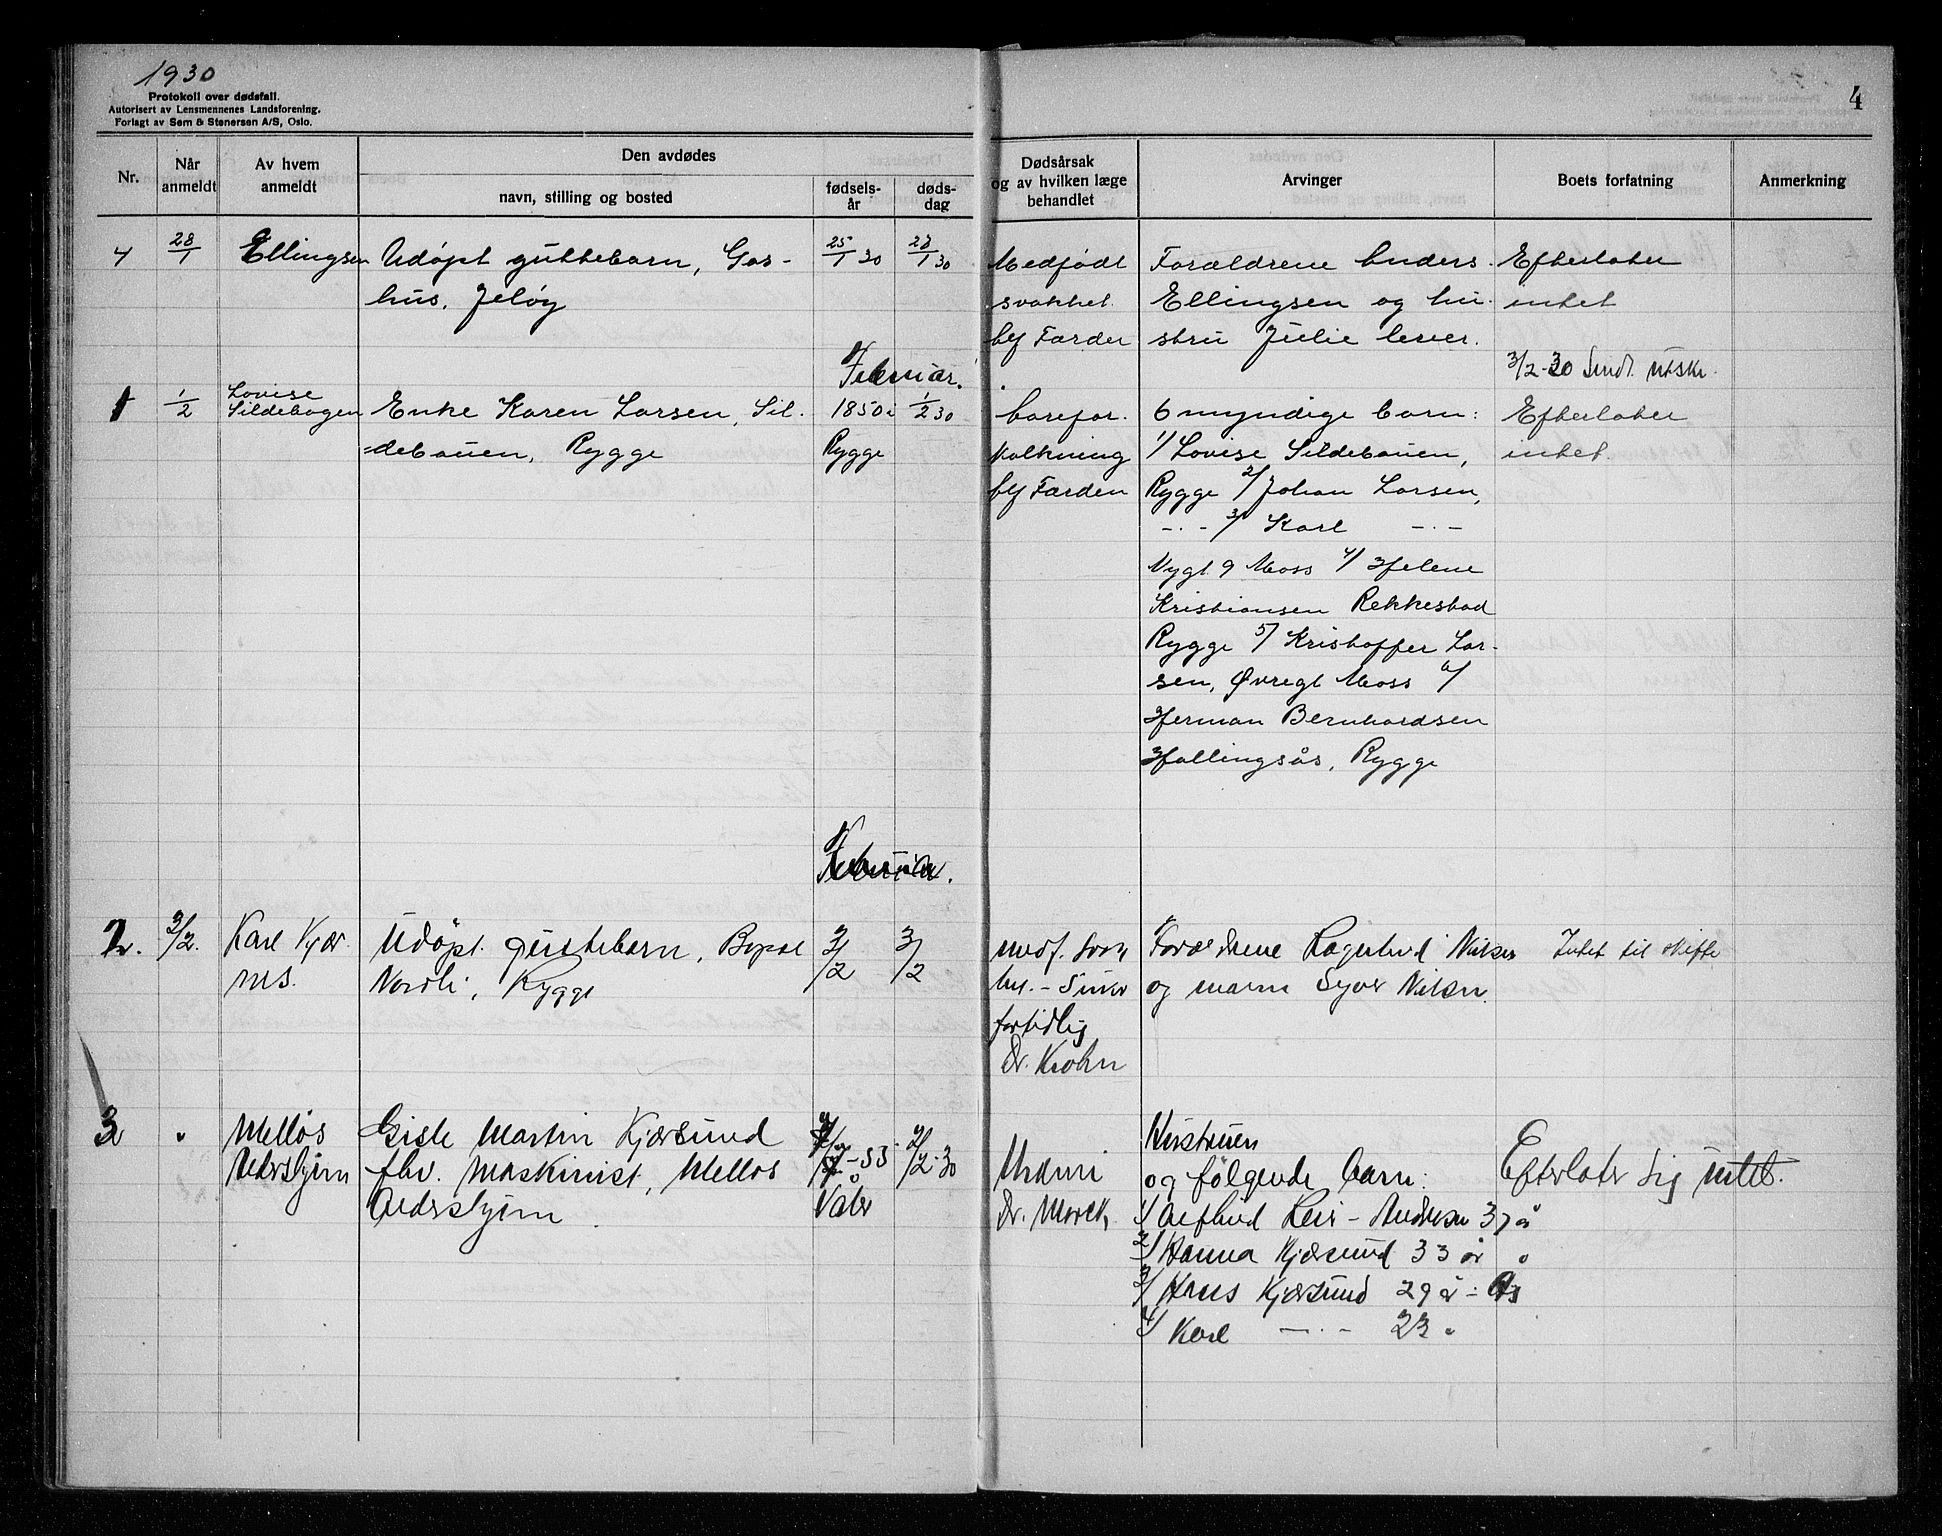 1930
Protokoll over dødsfall.
Autorisert av Lensmennenes Landsforening.
Forlagt av Sem & Stenersen A/S, Oslo.
4
Nr.
Når anmeldt
Av hvem anmeldt
Den avdødes
navn, stilling og bosted
fødsels-år
døds-dag
Dødsårsak og av hvilken læge behandlet
Arvinger
Boets forfatning
Anmerkning
4 28/1 Ellingsen Udøpt guttebarn, Gas- 25/1 30 28/1 30
hus, Jeløy
Medfødt
svakhet
Færder
Forældrene Anders
Ellingsen og hu-
stru Julie lever.
Efterlater
intet
Februar.
3/2-30 Sendt utskr.
1 1/2 Lovise
Sildebogen Enke Karen Larsen, Sil- 1850 i 1/2 30
debauen, Rygge Rygge
Aarefor-
kalkning
Færden
6 myndige barn:
1/ Lovise Sildebauen,
Rygge 2/ Johan Larsen,
-·- 3/ Karl -·-
Nygt. 9 Moss 4/ Helene
Kristiansen Rekkestad
Rygge 5/ Kristoffer Lar-
sen, Øvregt Moss 6/
Herman Bernhardsen
Hallingsås, Rygge
Efterlater
intet.
Februar.
2. 3/2. Karl Kjær Udøpt guttebarn, 3/2 3/2
ns. Nordli, Rygge
medf. svak
het. -
fortidlig
Dr. Krohn
Forældrene Ragnhild Nilsen
og mann Syver Nilsen.
Intet til skifte
3 " Melløs Gisle Martin Kjærsund 2/2-30
fhv. maskinist, Melløs
Våler
Uræmi
Dr. Marek
Hustruen
og følgende barn:
1/ Leir - Andresen 37 å
2/ Hanna Kjærsund 33 år "
3/ Hans Kjærsund 29 å - Ås
4/ Karl -·- 23 "
Efterlater sig intet.